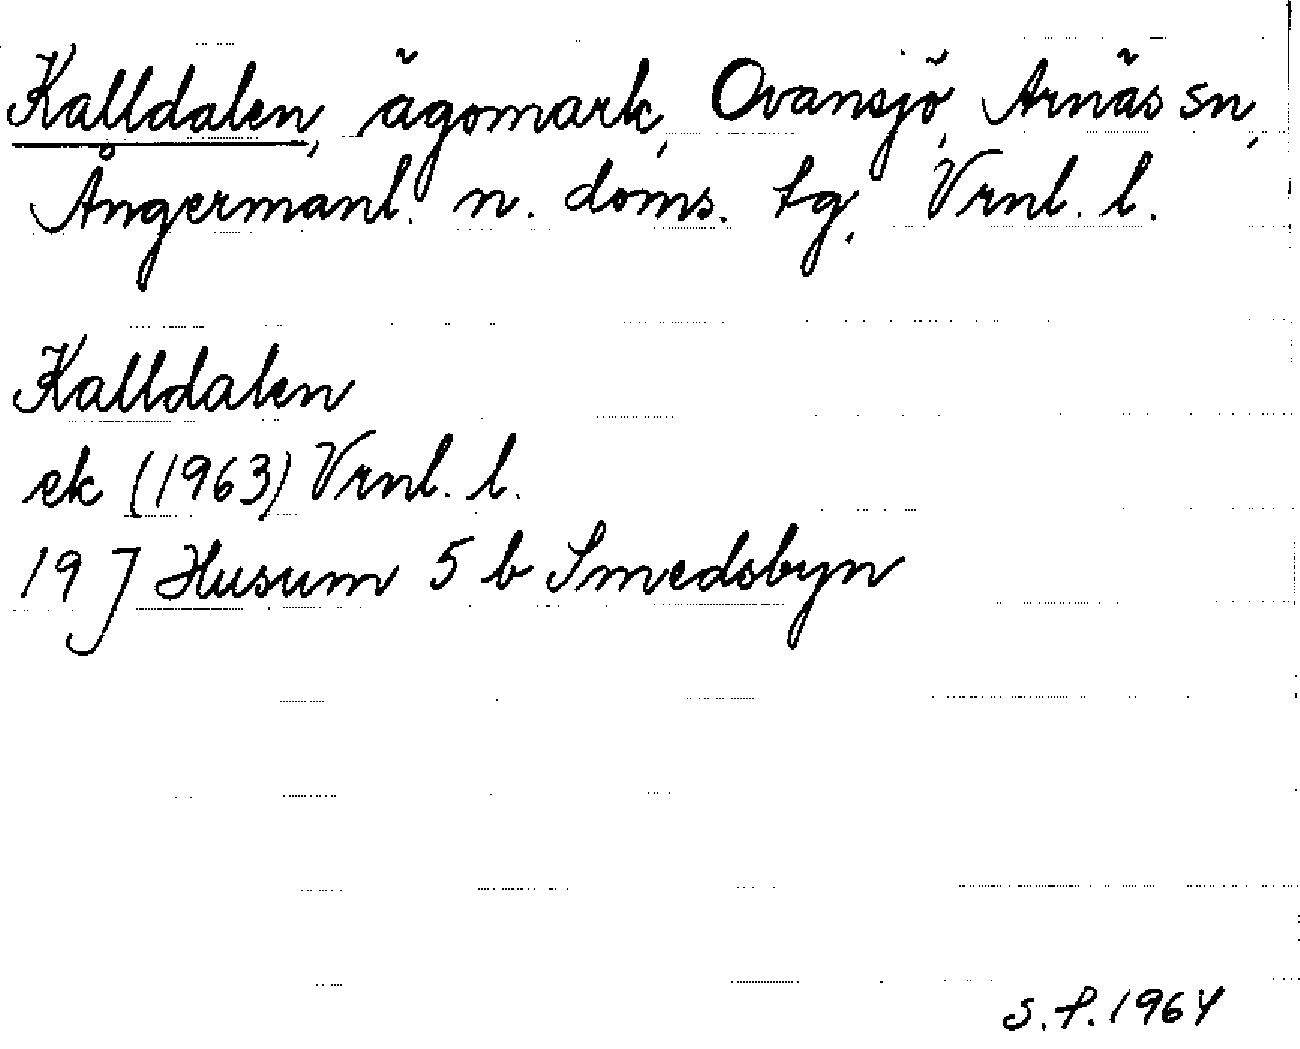 Kalldalen, ägomark, Ovansjö, Arnäs sn,
Ångermanl. n. doms. tg, Vrnl. l.
Kalldalen
ek (1963) Vrnl. l.
19 J Husum 5 b Smedsbyn
s.f. 1964